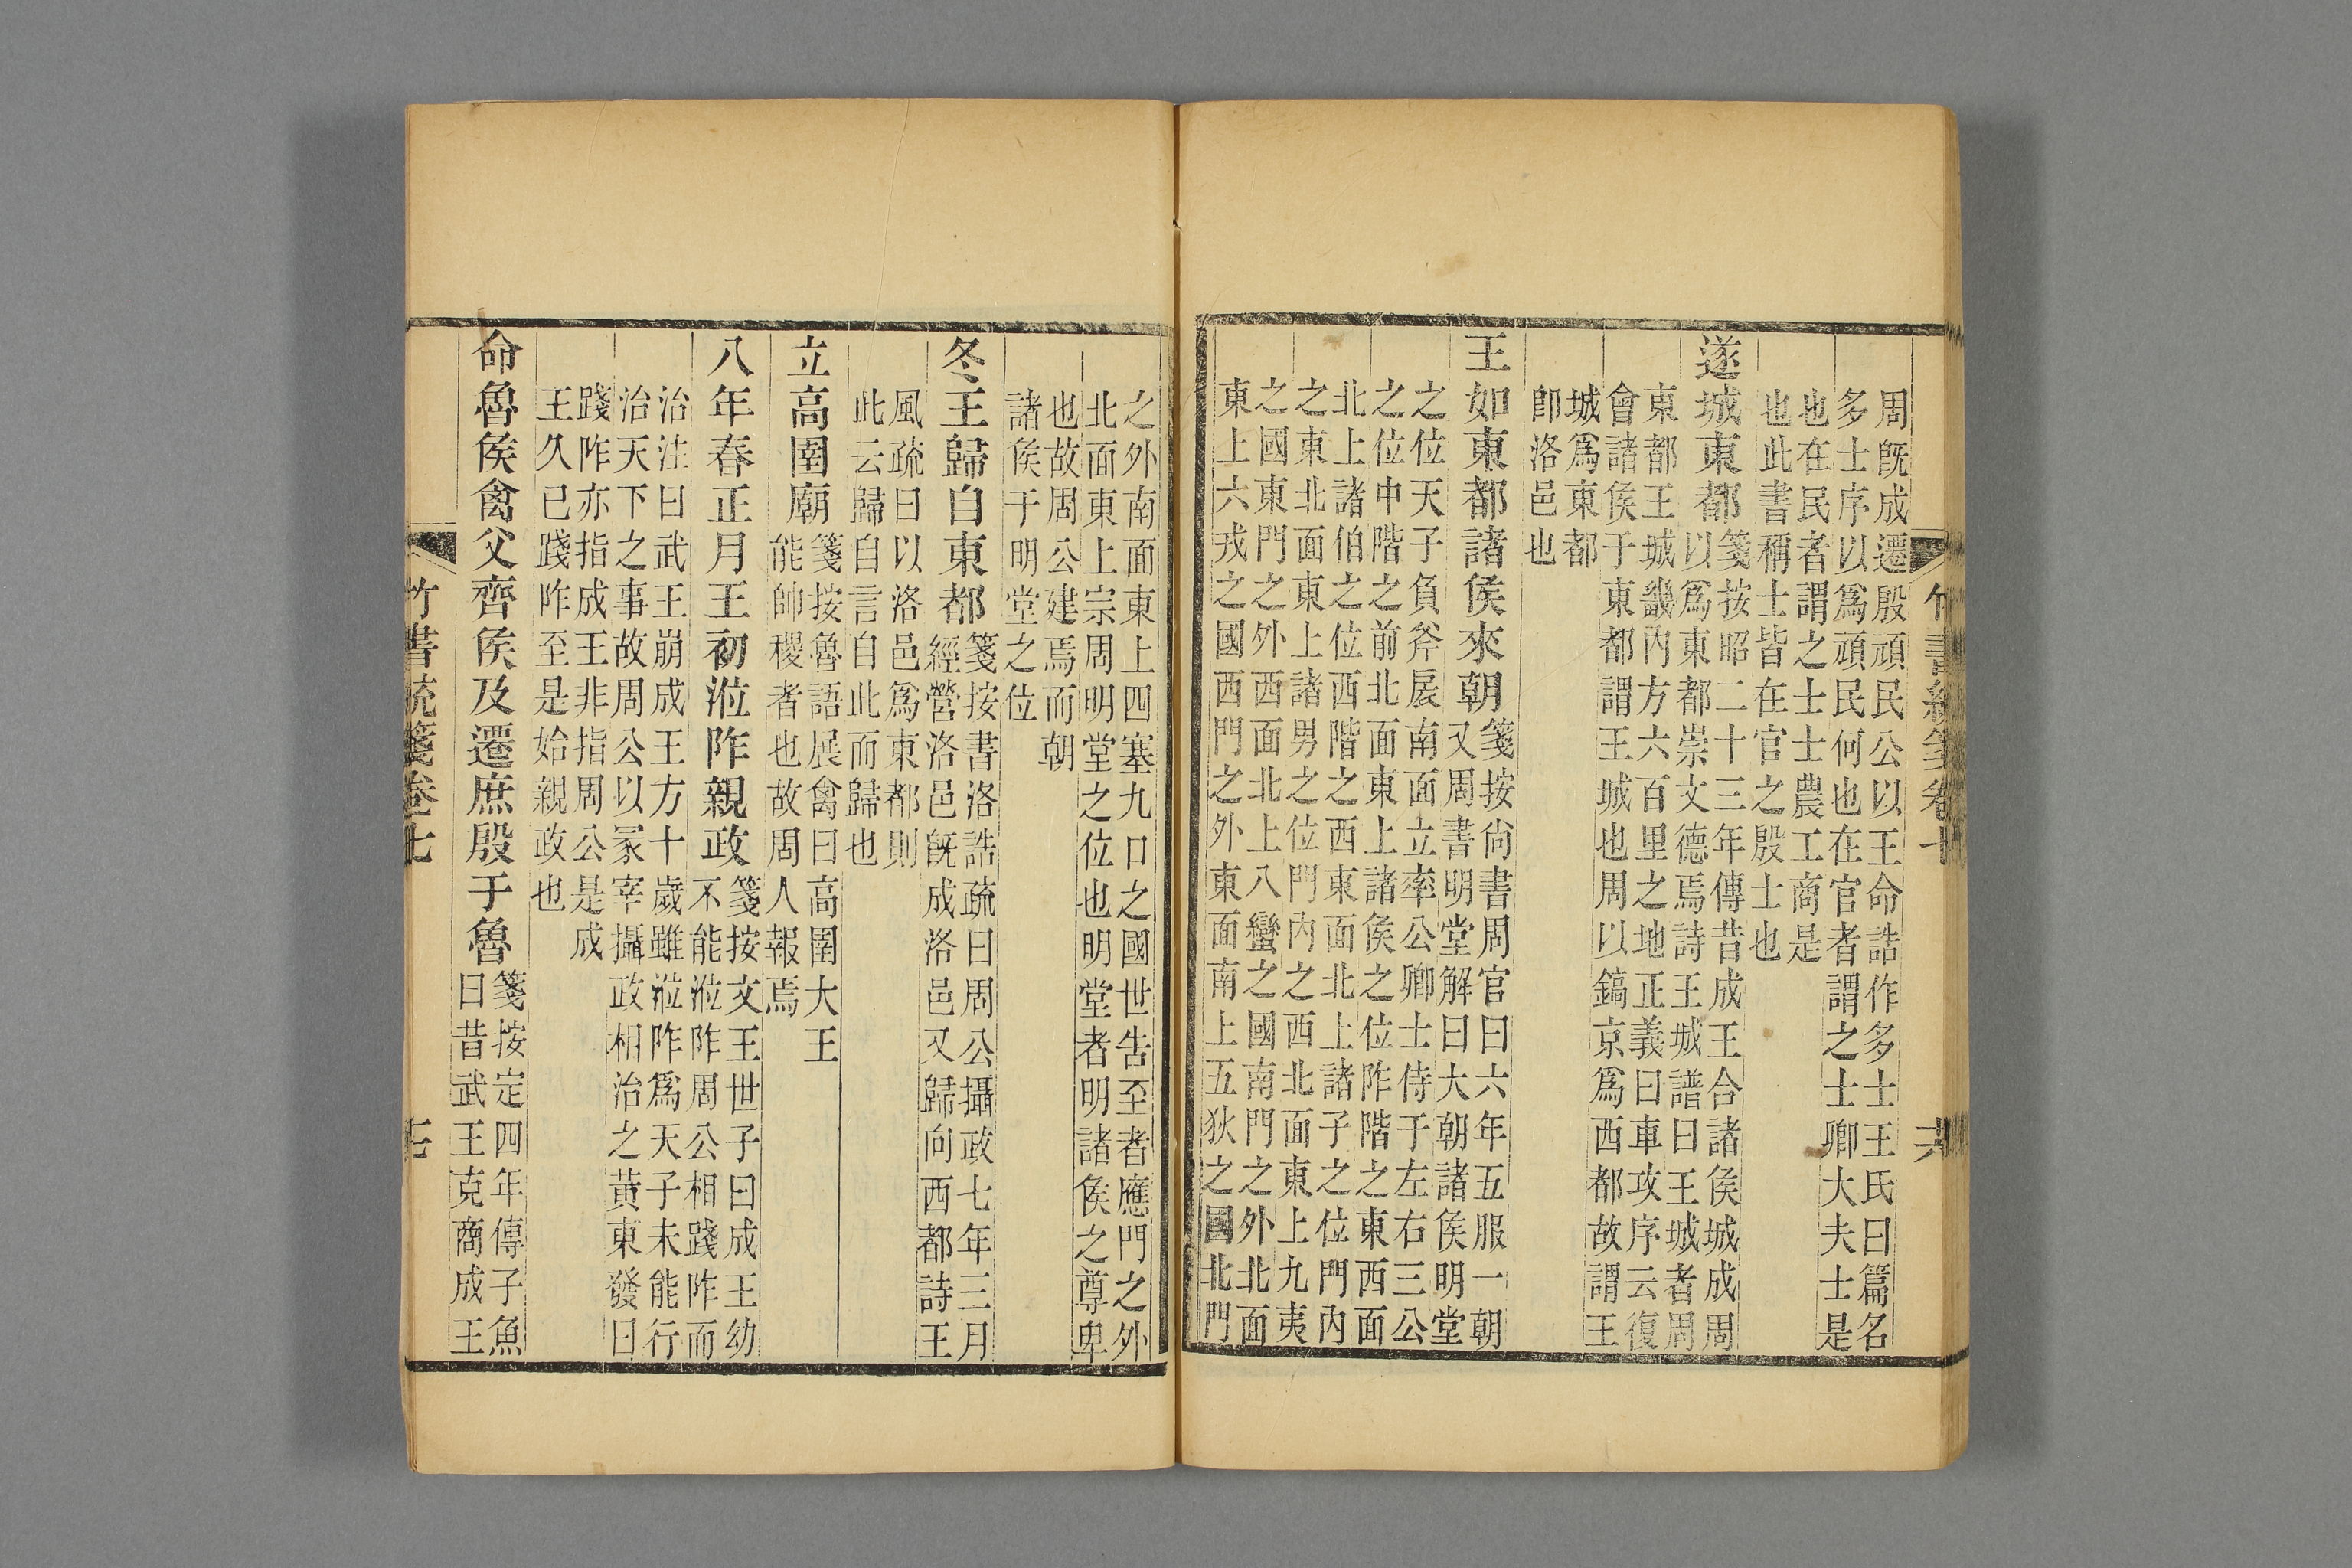 周旣成遷殷頑民公以王命誥作多士王氏曰篇名
多士序以爲頑民何也在官者謂之士卿大夫士是
也在民者謂之士士農工商是
也此書稱士皆在官之殷士也
遂城東都箋按昭二十三年傳昔成王合諸侯城成周
以爲東都崇文德焉詩王城譜曰王城者周
東都王城畿內方六百里之地正義曰車攻序云復
會諸侯于東都謂王城也周以鎬京爲西都故謂王
城爲東都
卽洛邑也
王如東都諸侯來朝箋按尙書周官曰六年五服一朝
又周書明堂解曰大朝諸侯明堂
之位天子負斧扆南面立率公卿士侍于左右三公
之位中階之前北面東上諸侯之位阼階之東西面
北上諸伯之位西階之西東面北上諸子之位門內
之東北面東上諸男之位門內之西北面東上九夷
之國東門之外西面北上八蠻之國南門之外北面
東上六戎之國西門之外東面南上五狄之國北門
之外南面東上四塞九口之國世告至者應門之外
北面東上宗周明堂之位也明堂者明諸侯之尊卑
也故周公建焉而朝
諸侯于明堂之位
冬王歸自東都箋按書洛誥疏曰周公攝政七年三月
經營洛邑旣成洛邑又歸向西都詩王
風疏曰以洛邑爲東都則
此云歸自言自此而歸也
立高圉廟箋按魯語展禽曰高圉大王
能帥稷者也故周人報焉
八年春正月王初涖阼親政箋按文王世子曰成王幼
不能涖阼周公相踐阼而
治注曰武王崩成王方十歲雖涖阼爲天子未能行
治天下之事故周公以冢宰攝政相治之黃東發曰
踐阼亦指成王非指周公是成
王久已踐阼至是始親政也
命魯侯禽父齊侯及遷庶殷于魯箋按定四年傳子魚
曰昔武王克商成王
竹書統箋卷七
七